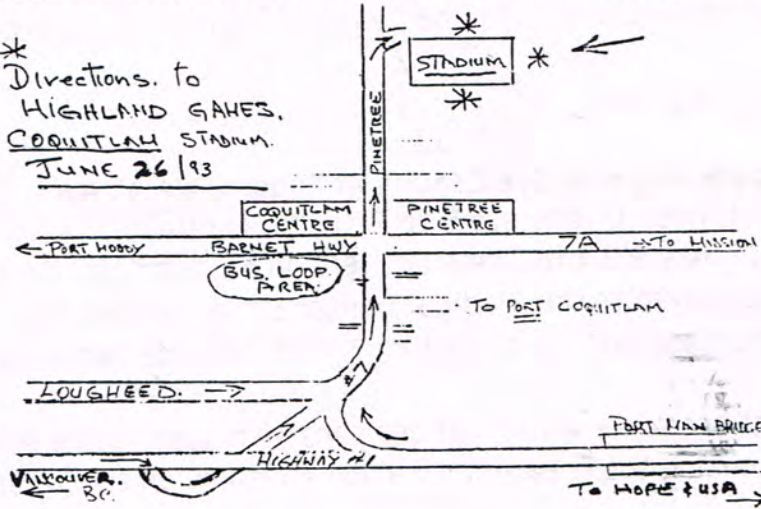 * Directions. to
HIGHLAND GAMES.
COQUITLAM STADIUM.
JUNE 26/93
STADIUM
PINETREE
COQUITLAM
CENTRE
PINETREE
CENTRE
← PORT MOODY
BARNET HWY
7A → TO MISSION
BUS LOOP
AREA
TO PORT COQUITLAM
#7
LOUGHEED. →
PORT MAN BRIDGE
HIGHWAY #1
VANCOUVER.
← BC.
TO HOPE & USA →